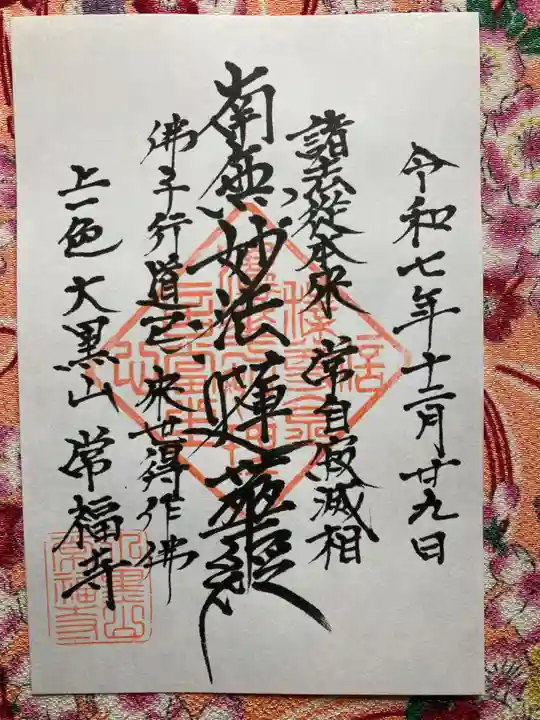 令和七年十二月廿九日
諸法從本來 常自寂滅相
南無妙法蓮華経
佛子行道已 来世得作佛
上一色 大黒山 常福寺